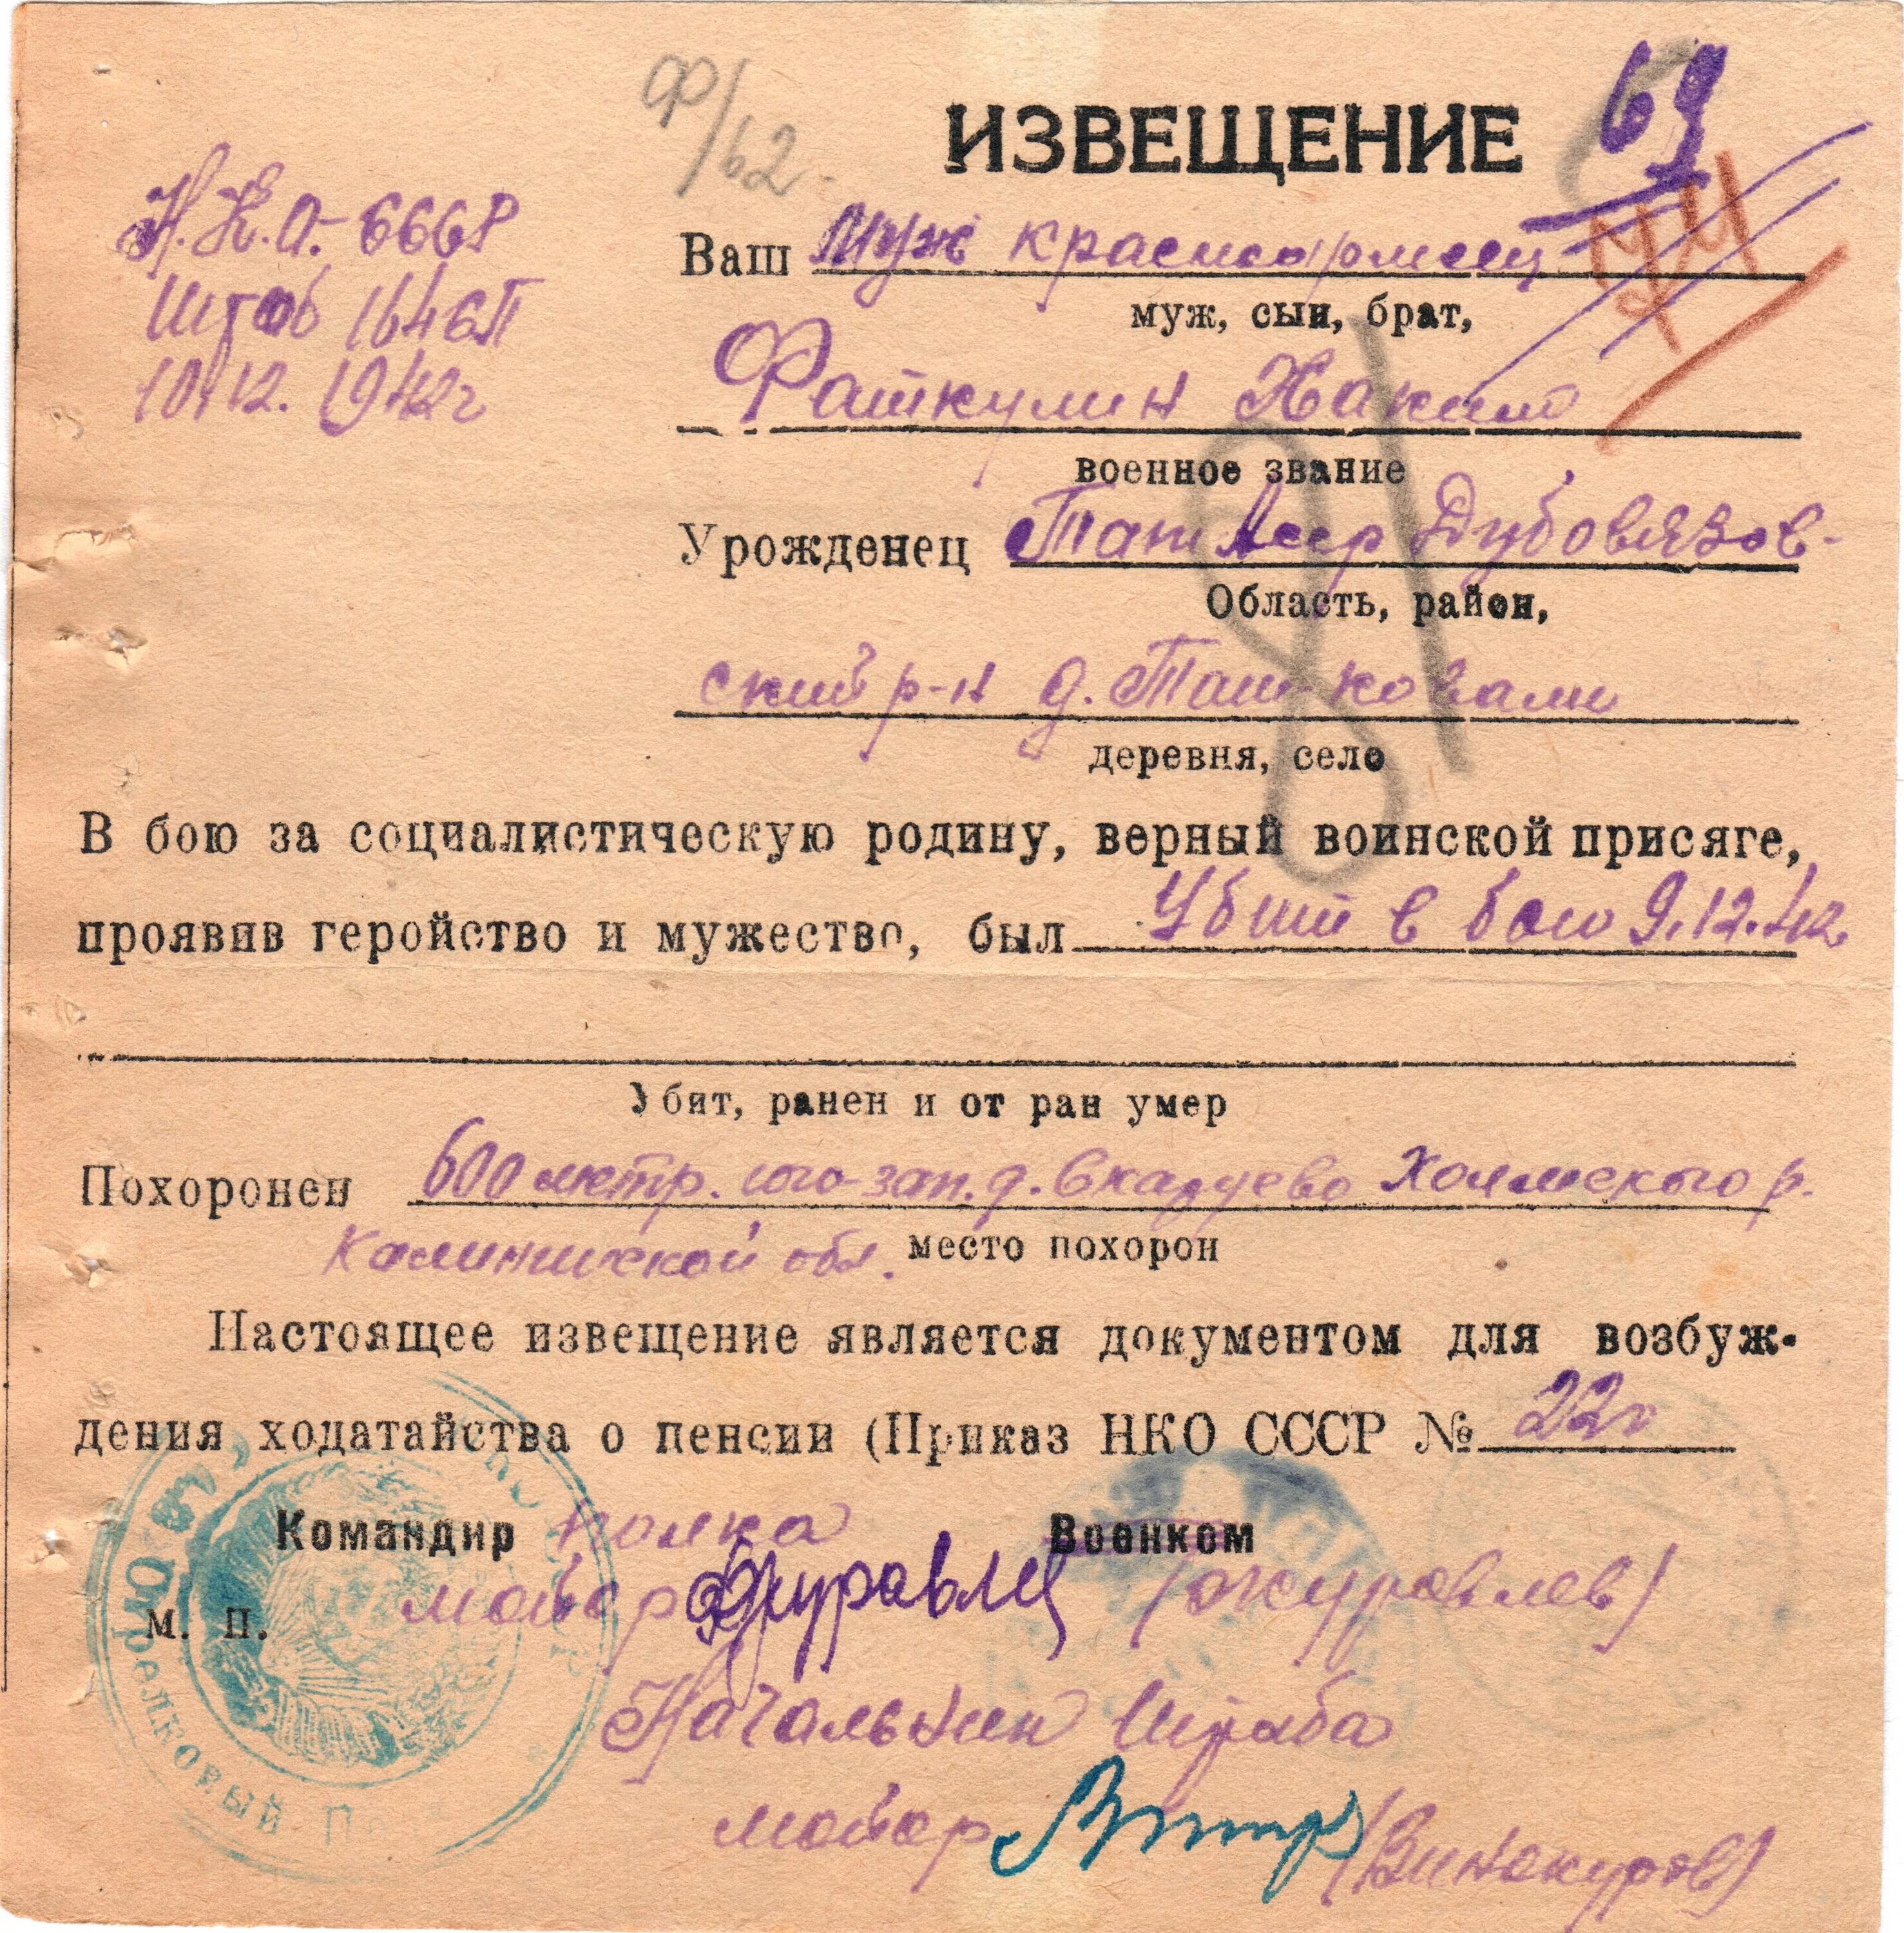 Ф/62.
69
ИЗВЕЩЕНИЕ
Н.К.О. 
Штаб 164 СП
10.12.1942г
Ваш муж красноармеец
муж, сын, брат,
Фаткулин Хаким
военное звание
Урожденец Тат Асср Дубовязов-
Область, район,
ский р-н д. Таш-Ковали
деревня, село
В бою за социалистическую родину, верный воинской присяге,
проявив геройство и мужество, был убит в бою 9.12.42
Убит, ранен и от ран умер
Похоронен 600 метр. юго-зап. д. Холмского р.
Калининской обл. место похорон
Настоящее извещение является документом для возбуж-
дения ходатайства о пенсии (Приказ НКО СССР №
Командир полка Военком
М. П. майор Журавлев (Журавлев)
Начальник Штаба
майор (Винокуров)
Стрелковый П